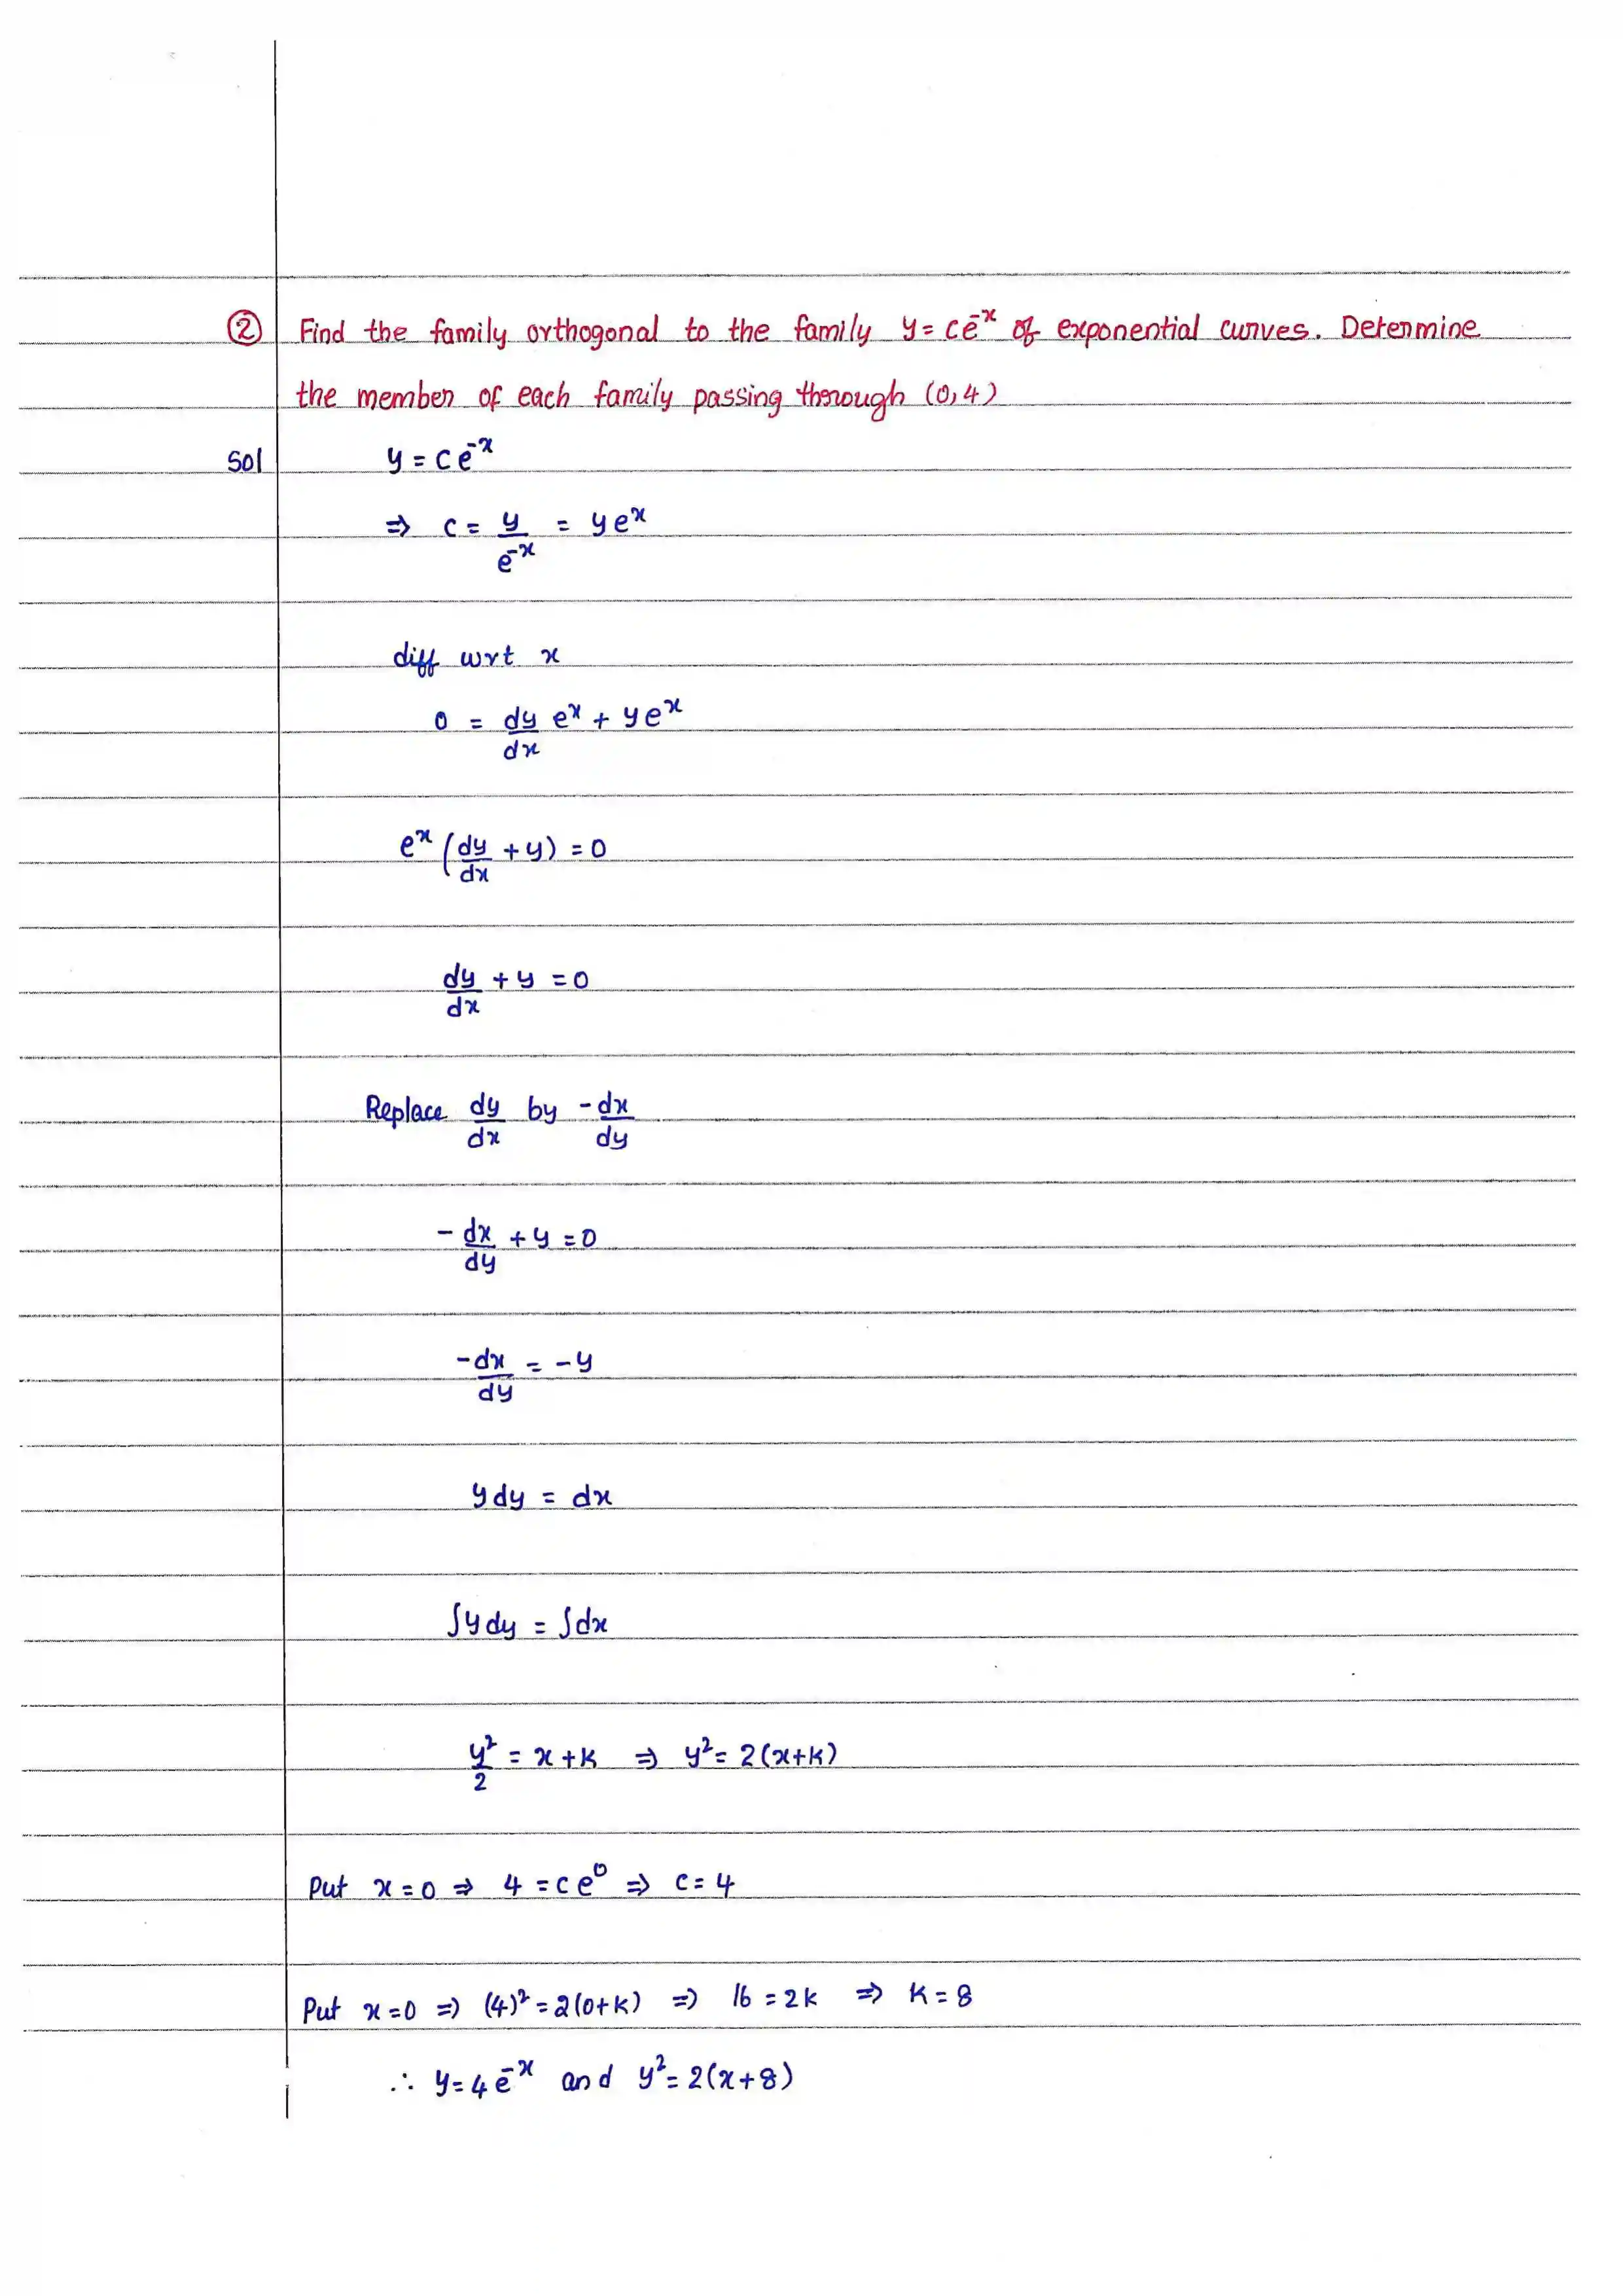 ② Find the family orthogonal to the family y = ce⁻ˣ of exponential curves. Determine
the member of each family passing through (0,4)
Sol y = ce⁻ˣ
⇒ c = y/e⁻ˣ = yeˣ
diff wrt x
0 = dy/dx eˣ + yeˣ
eˣ(dy/dx + y) = 0
dy/dx + y = 0
Replace dy/dx by -dx/dy
-dx/dy + y = 0
-dx/dy = -y
ydy = dx
∫ydy = ∫dx
y²/2 = x+k ⇒ y² = 2(x+k)
Put x=0 ⇒ 4 = ce⁰ ⇒ c = 4
Put x=0 ⇒ (4)² = 2(0+k) ⇒ 16 = 2k ⇒ k = 8
∴ y = 4e⁻ˣ and y² = 2(x+8)